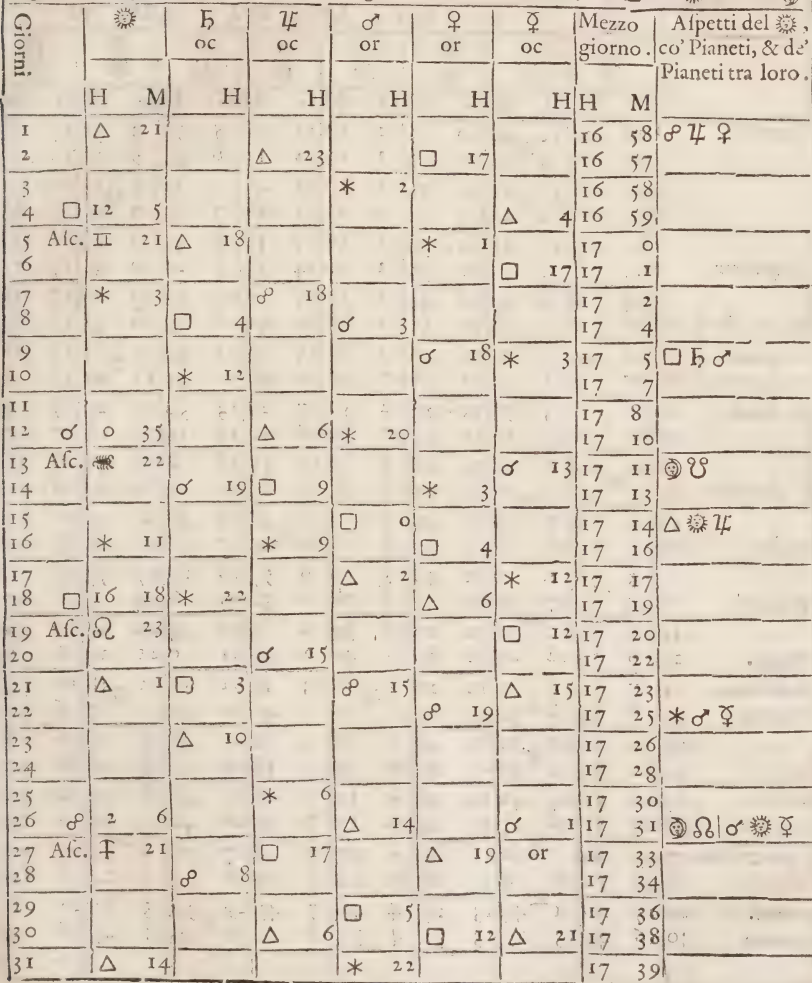 Giorni ☼ ♄ ♃ ♂ ♀ ☿ Mezzo Aſpetti del ☼,
oc oc or or oc giorno. co' Pianeti, & de'
Pianeti tra loro.
H M H H H H H H M
1 △ 21 16 58 ☍ ♃ ♀
2 △ 23 □ 17 16 57
3 ⚹ 2 16 58
4 □ 12 5 △ 4 16 59
5 Aſc. ♊ 21 △ 18 ⚹ 1 17 0
6 □ 17 17 1
7 ⚹ 3 ☍ 18 17 2
8 □ 4 ☌ 3 17 4
9 ☌ 18 ⚹ 3 17 5 □ ♄ ♂
10 ⚹ 12 17 7
11 17 8
12 ☌ 0 35 △ 6 ⚹ 20 17 10
13 Aſc. ♏ 22 ☌ 13 17 11 ☽ ☋
14 ☌ 19 □ 9 ⚹ 3 17 13
15 □ 0 17 14 △ ☼ ♃
16 ⚹ 11 ⚹ 9 □ 4 17 16
17 △ 2 ⚹ 12 17 17
18 □ 16 18 ⚹ 22 △ 6 17 19
19 Aſc. ♌ 23 □ 12 17 20
20 ☌ 15 17 22
21 △ 1 □ 3 ☍ 15 △ 15 17 23
22 ☍ 19 17 25 ⚹ ♂ ☿
23 △ 10 17 26
24 17 28
25 ⚹ 6 17 30
26 ☍ 2 6 △ 14 ☌ 1 17 31 ☽ ☊ | ☌ ☼ ☿
27 Aſc. ♐ 21 □ 17 △ 19 or 17 33
28 ☍ 8 17 34
29 □ 5 17 36
30 △ 6 □ 12 △ 21 17 38
31 △ 14 ⚹ 22 17 39